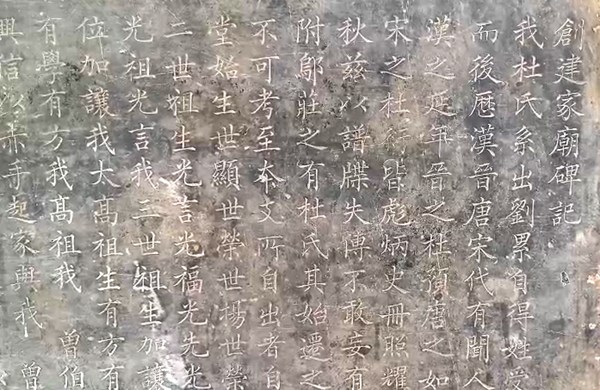 創建家廟碑記
我杜氏系出劉累自得姓受
而後歷漢晉唐宋代有聞人
漢之延年晉之杜預唐之如
宋之杜衍皆彪炳史冊照耀
秋茲以譜牒失傳不敢妄有
附鄔莊之有杜氏其始遷之
不可考至奈文所自出者自
堂始生世顯世榮世楊世榮
二世祖生光言光福光先光
光祖光言我三世祖生加讓
位加讓我太高祖生有方有
有學有方我高祖我 曾伯
興信以赤手起家與我 曾